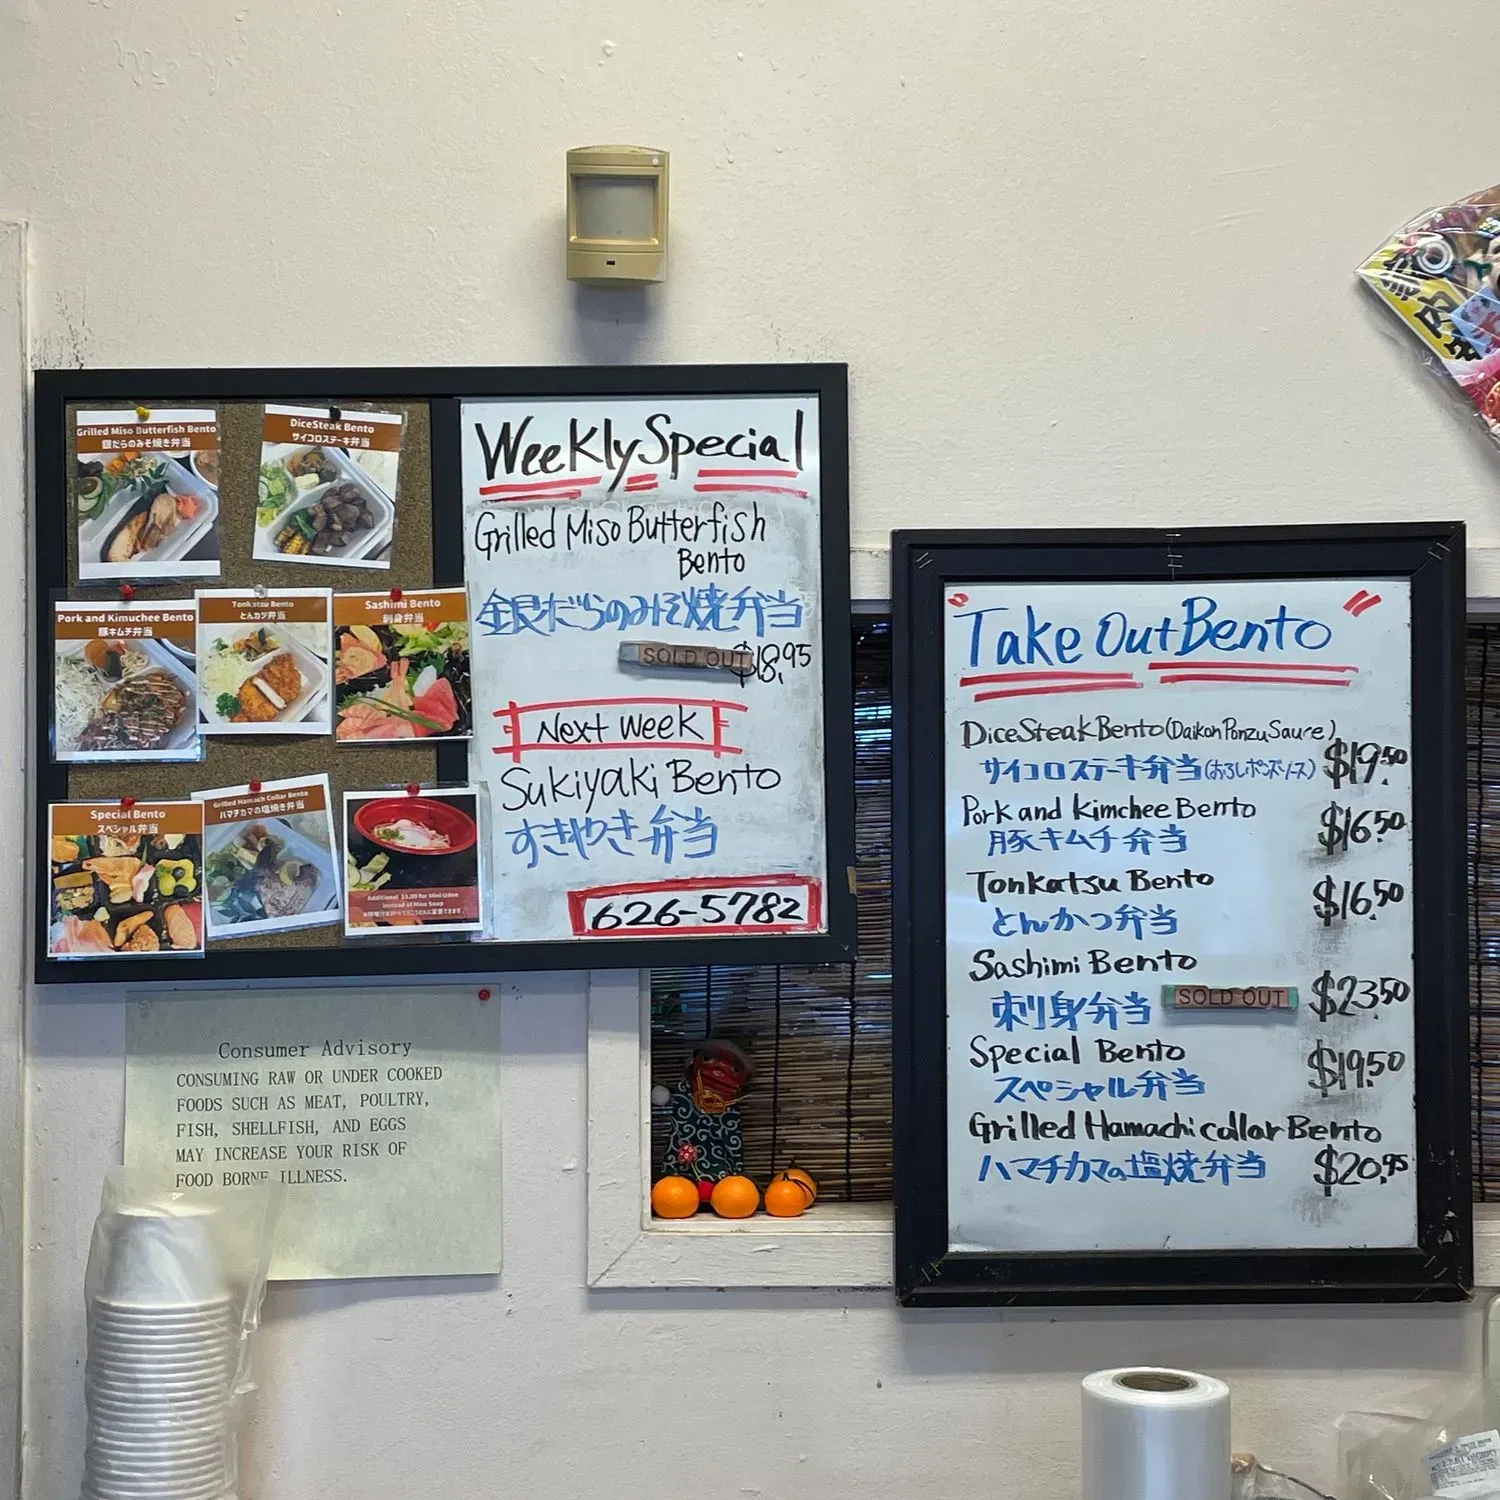 Grilled Miso Butterfish Bento
銀だらのみそ焼き弁当
DiceSteak Bento
サイコロステーキ弁当
Pork and Kimchee Bento
豚キムチ弁当
Tonkatsu Bento
とんカツ弁当
Sashimi Bento
刺身弁当
Special Bento
スペシャル弁当
Grilled Hamach Collar Bento
ハマチカマの塩焼き弁当
Additional $3.00 for Mini-Udon
instead of Miso Soup
Weekly Special
Grilled Miso Butterfish
Bento
銀だらのみそ焼弁当
SOLD OUT $18.95
Next Week
Sukiyaki Bento
すきやき弁当
626-5782
Consumer Advisory
CONSUMING RAW OR UNDER COOKED
FOODS SUCH AS MEAT, POULTRY,
FISH, SHELLFISH, AND EGGS
MAY INCREASE YOUR RISK OF
FOOD BORNE ILLNESS.
"Take Out Bento"
Dice Steak Bento (Daikon Ponzu Sauce)
サイコロステーキ弁当(おろしポンズソース) $19.50
Pork and Kimchee Bento
豚キムチ弁当 $16.50
Tonkatsu Bento
とんかつ弁当 $16.50
Sashimi Bento
刺身弁当 SOLD OUT $23.50
Special Bento
スペシャル弁当 $19.50
Grilled Hamachi collar Bento
ハマチカマの塩焼弁当 $20.95